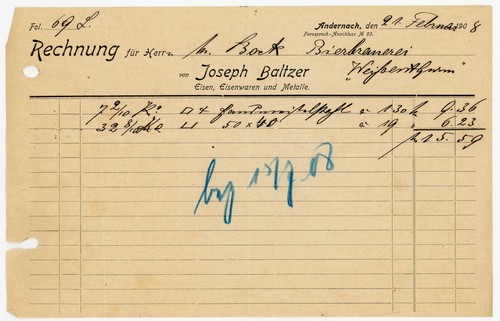 Fol. 69 L.
Andernach, den 21 Februar 1908
Fernsprech-Anschluss № 53.
Rechnung für Herrn W. Bock Bierbrauerei
von Joseph Baltzer Weißenthurm
Eisen, Eisenwaren und Metalle.
7 2/10 Ko □ 4 à 130 M 9.36
32 8/10 Ko ⊔ 50 x 40 à 19 " 6.23
M 15.59
bez 13/7 08